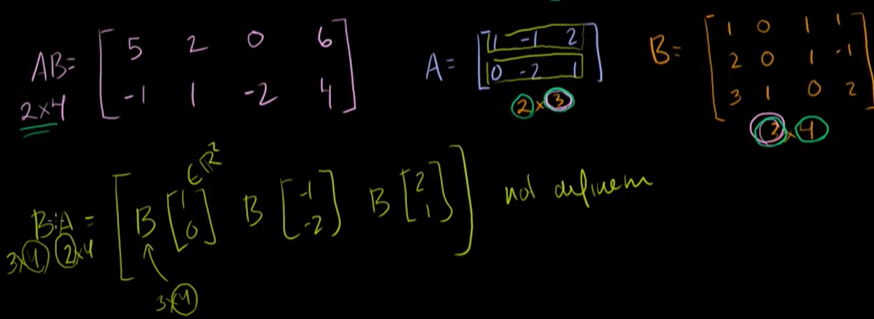 AB= [ 5 2 0 6
-1 1 -2 4 ]
2×4
A= [ 1 -1 2
0 -2 1 ]
2×3
B= [ 1 0 1 1
2 0 1 -1
3 1 0 2 ]
3×4
∈R²
BA= [ B [ 1 0 ] B [ -1 -2 ] B [ 2 1 ] ] not
3×4 2×4
3×4